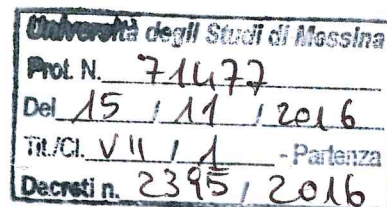 Università degli Studi di Messina
Prot. N. 71477
Del 15 / 11 / 2016
Tit./Cl. VII / 1 - Partenza
Decreti n. 2395 / 2016